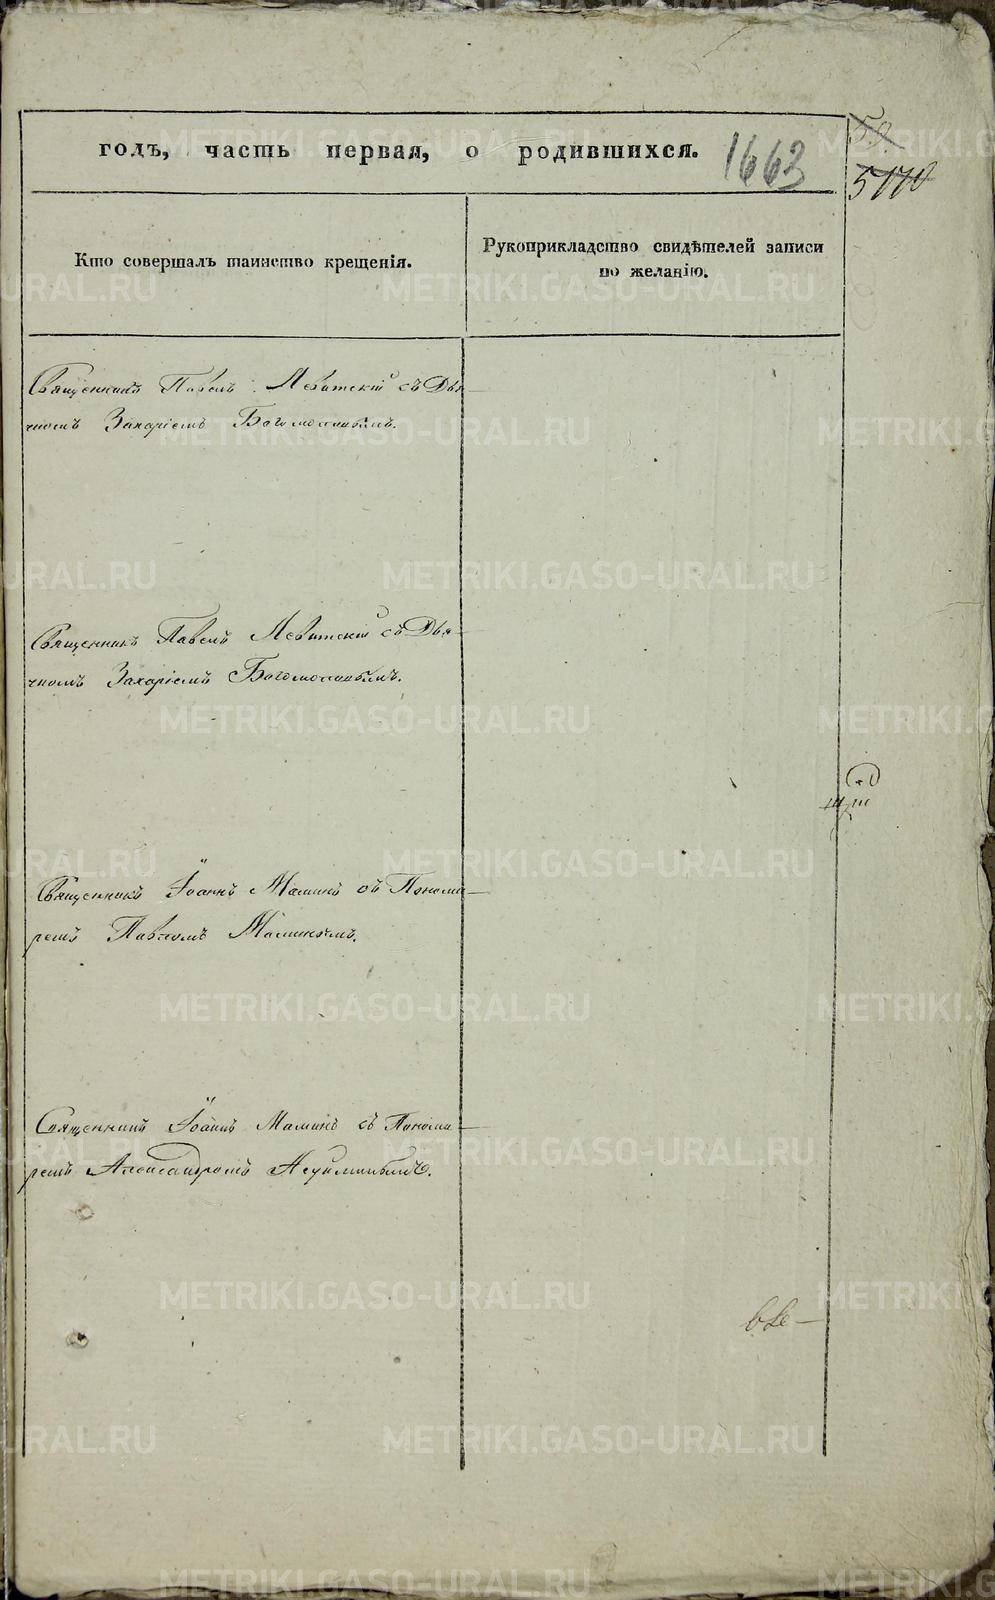 годъ, часть первая, о родившихся.
1663
50.
5170
Кто совершалъ таинство крещенія.
Рукоприкладство свидѣтелей записи
по желанію.
Священникъ Павелъ Левитскій съ Дья-
чкомъ Захаріемъ Богомоловымъ.
Священникъ Павелъ Левитскій съ Дья-
чкомъ Захаріемъ Богомоловымъ.
Священникъ Іоаннъ Маминъ съ Понома-
ремъ Павломъ Маминымъ.
Священникъ Іоаннъ Маминъ съ Понома-
ремъ Александромъ
METRIKI.GASO-URAL.RU